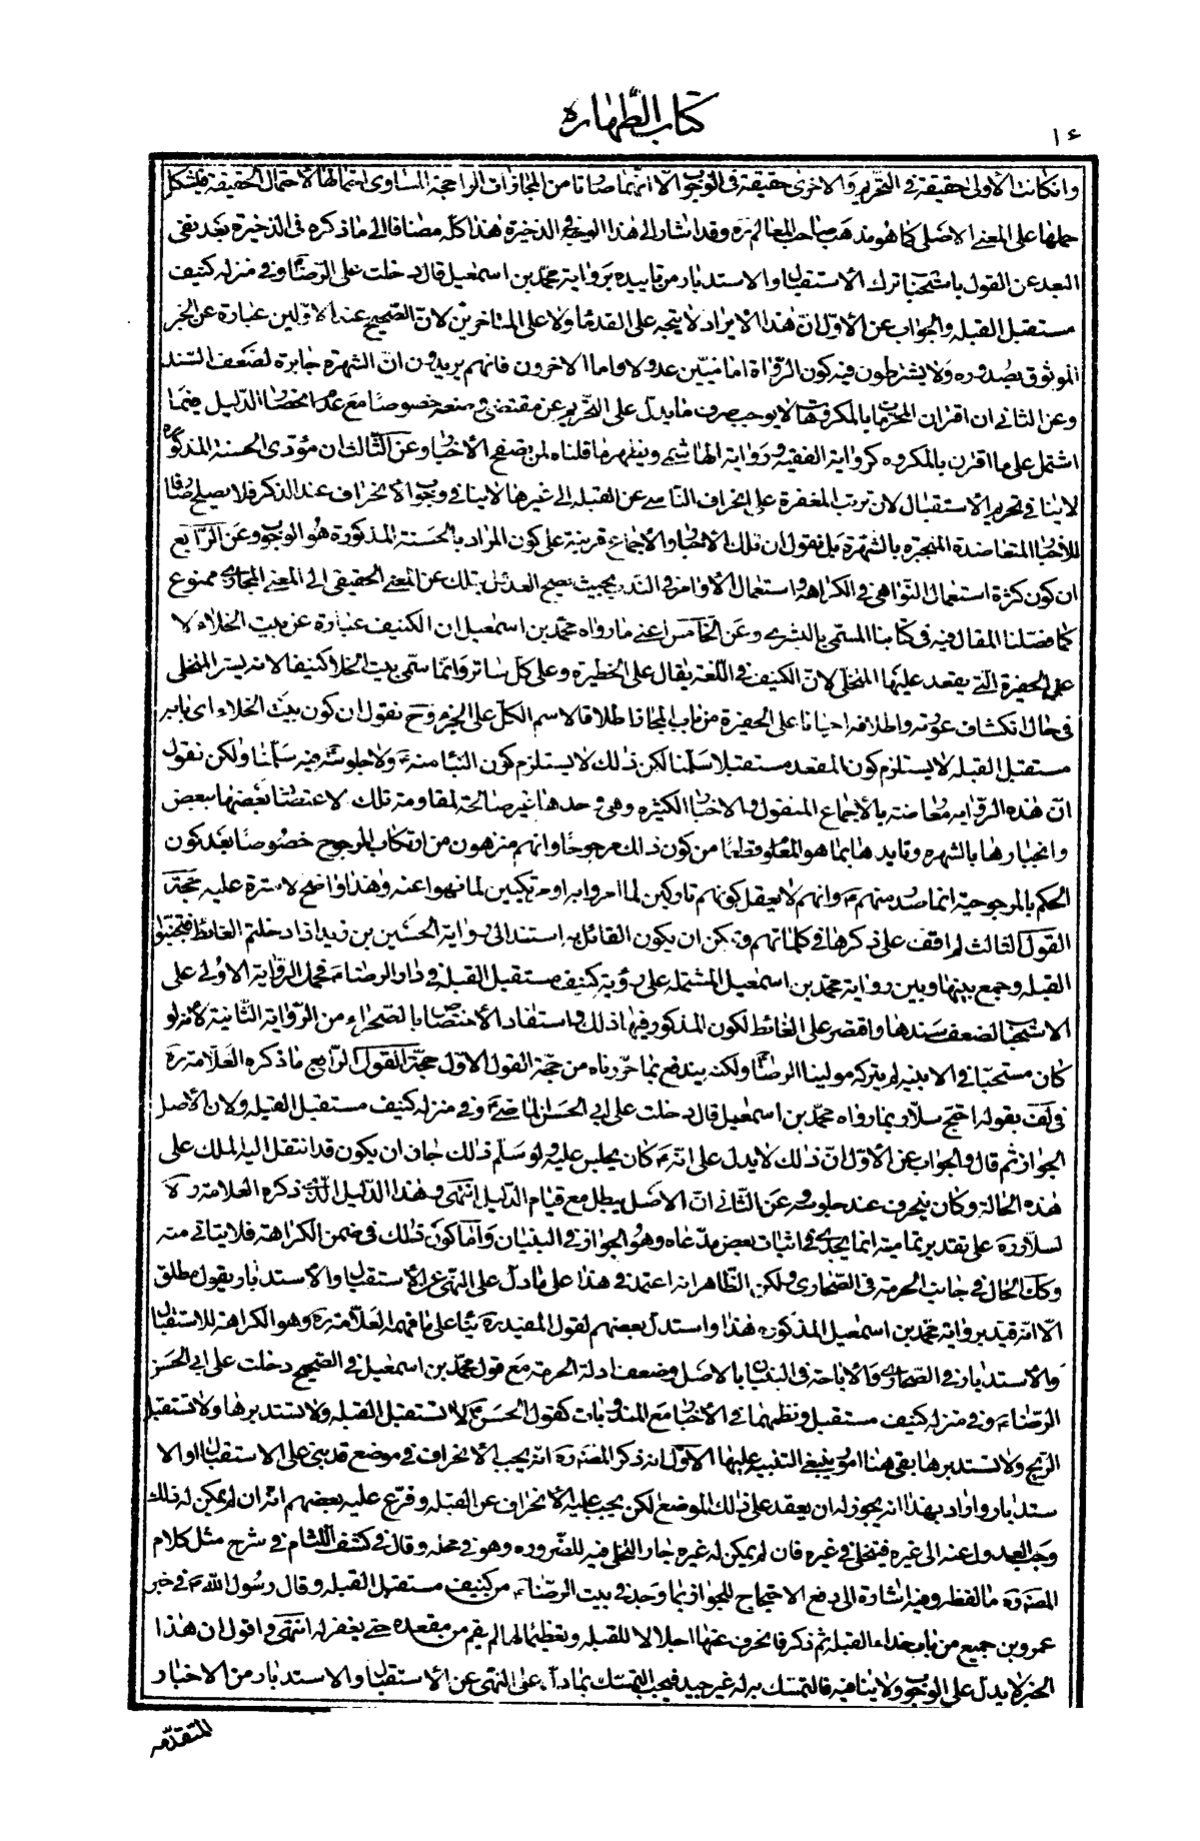 كتاب الطهارة
١٤
وان كانت الأولى حقيقة في التحريم والاخرى حقيقة في الوجوب الا انهما صارتا من المجازات الراجحة المساوى احتمالها لاحتمال الحقيقة فيشكل
حملها على المعنى الاصلى كما هو مذهب صاحب المعالم ره وقد اشار الى هذا الوجه في الذخيرة هذا كله مضافا الى ما ذكره في الذخيرة بعد نفى
البعد عن القول باستحباب ترك الاستقبال والاستدبار من تاييده برواية محمد بن اسمعيل قال دخلت على الرضا و في منزله كنيف
مستقبل القبلة والجواب عن الأول ان هذا الايراد لا يتجه على القدماء ولا على المتاخرين لان الصحيح عند الاولين عبارة عن الخبر
الموثوق بصدوره ولا يشترطون فيه كون الرواة اماميين عدولا واما الاخرون فانهم يريدون ان الشهرة جابرة لضعف السند
وعن الثاني ان اقران المحرمات بالمكروهات لا يوجب صرف ما يدل على التحريم عن مقتضى وضعه خصوصا مع عدم انحصار الدليل فيما
اشتمل على ما اقترن بالمكروه كرواية الفقيه ورواية الهاشمي ويظهر ما قلناه لمن تصفح الأخبار وعن الثالث ان مؤدى الحسنة المذكورة
لا ينافي تحريم الاستقبال لان ترتب المغفرة على انحراف الناسي عن القبلة الى غيرها لا ينافي وجوب الانحراف عند الذكر فلا يصلح صارفا
للأخبار المتعاضدة المنجبرة بالشهرة بل نقول ان تلك الأخبار والأجماع قرينة على كون المراد بالحسنة المذكورة هو الوجوب وعن الرابع
ان كون كثرة استعمال النواهي في الكراهة واستعمال الأوامر في الندب بحيث يصح العدول بتلك عن المعنى الحقيقي الى المعنى المجازى ممنوع
كما فصلنا المقال فيه في كتابنا المسمى بالبشرى وعن الخامس اعنى ما رواه محمد بن اسمعيل ان الكنيف عبارة عن بيت الخلاء لا
على الحفيرة التي يقعد عليها المتخلى لان الكنيف في اللغة يقال على الحظيرة وعلى كل ساتر وانما سمى بيت الخلا كنيفا لانه يستر المتخلى
في حال انكشاف عورته واطلاقه احيانا على الحفيرة من باب المجاز اطلاقا لاسم الكل على الجزء وح نقول ان كون بيت الخلاء اى بابه
مستقبل القبلة لا يستلزم كون المقعد مستقبلا سلمنا لكن ذلك لا يستلزم كون البناء منه ع ولا جلوسه فيه سلمنا ولكن نقول
ان هذه الرواية معارضة بالأجماع المنقول والاخبار الكثيره وهى وحدها غير صالحة لمقاومة تلك لاعتضاد بعضها ببعض
وانجبارها بالشهره وتايدها بما هو المعلوم قطعا من كون ذلك مرجوحا وانهم منزهون من ارتكاب المرجوح خصوصا بعد كون
الحكم بالمرجوحية انما صدر منهم ع وانهم لا يعقل كونهم تاركين لما امروا به او مرتكبين لما نهوا عنه وهذا واضح لا سترة عليه حجة
القول الثالث لم اقف على ذكرها في كلماتهم ويمكن ان يكون القائل به استند الى رواية الحسين بن زيد اذا دخلتم الغائط فتجنبوا
القبلة وجمع بينها وبين رواية محمد بن اسمعيل المشتملة على رؤية كنيف مستقبل القبلة في دار الرضا ع فحمل الرواية الاولى على
الاستحباب لضعف سندها واقتصر على الغائط لكون المذكور فيها ذلك واستفاد الأختصاص بالصحراء من الرواية الثانية لانه لو
كان مستحبا في الابنية لم يتركه مولينا الرضا ولكنه يندفع بما حررناه من حجة القول الاول حجة القول الرابع ما ذكره العلامة ره
في لف بقوله احتج سلار بما رواه محمد بن اسمعيل قال دخلت على ابى الحسن الماضى ع و في منزله كنيف مستقبل القبلة ولان الأصل
الجواز ثم قال والجواب عن الأول ان ذلك لا يدل على انه ع كان يجلس عليه ولو سلم ذلك جاز ان يكون قد انتقل اليه الملك على
هذه الحالة وكان ينحرف عند جلوسه وعن الثاني ان الاصل يبطل مع قيام الدليل انتهى وهذا الدليل الذى ذكره العلامة ره لا
لسلار ره على تقدير تماميته انما يجدى في اثبات بعض مدعاه وهو الجواز في البنيان واما كون ذلك في ضمن الكراهة فلا يتاتى منه
وكذا الحال في جانب الحرمة في الصحارى ولكن الظاهر انه اعتمد في هذا على ما دل على النهى عن الأستقبال والأستدبار بقول مطلق
الا انه قيد برواية محمد بن اسمعيل المذكورة هذا واستدل بعضهم لقول المفيد ره بناء على ما فهمه العلامة ره وهو الكراهة للاستقبال
والأستدبار في الصحارى والأباحة في البنيان بالاصل وضعف ادلة الحرمة مع قول محمد بن اسمعيل في الصحيح دخلت على ابى الحسن
الرضا ع وفي منزله كنيف مستقبل ونظمهما في الأخبار مع المندوبات كقول الحسن ع لا تستقبل القبلة ولا تستدبرها ولا تستقبل
الريح ولا تستدبرها بقى هنا امور ينبغى التنبيه عليها الأول انه ذكر المصنف ره انه يجب الأنحراف في موضع قد بنى على الاستقبال او الا
ستدبار واراد بهذا انه يجوز له ان يقعد على ذلك الموضع لكن يجب عليه الانحراف عن القبلة وفرع عليه بعضهم انه ان لم يمكن له ذلك
وجب العدول عنه الى غيره فيتخلى في غيره فان لم يمكن له غيره جاز التخلى فيه للضرورة وهو في محله وقال في كشف اللثام في شرح مثل كلام
المصنف ره ما لفظه وفيه اشارة الى دفع الاحتجاج للجواز بما وجد في بيت الرضا ع من كنيف مستقبل القبلة و قال رسول الله ص في خبر
عمرو بن جميع من بال حذاء القبلة ثم ذكر فانحرف عنها اجلالا للقبلة وتعظيما لها لم يقم من مقعده حتى يغفر له انتهى واقول ان هذا
الخبر لا يدل على الوجوب ولا ينافيه فالتمسك به له غير جيد فيجب التمسك بما دل على النهى عن الأستقبال والاستدبار من الاخبار
المتقدمة